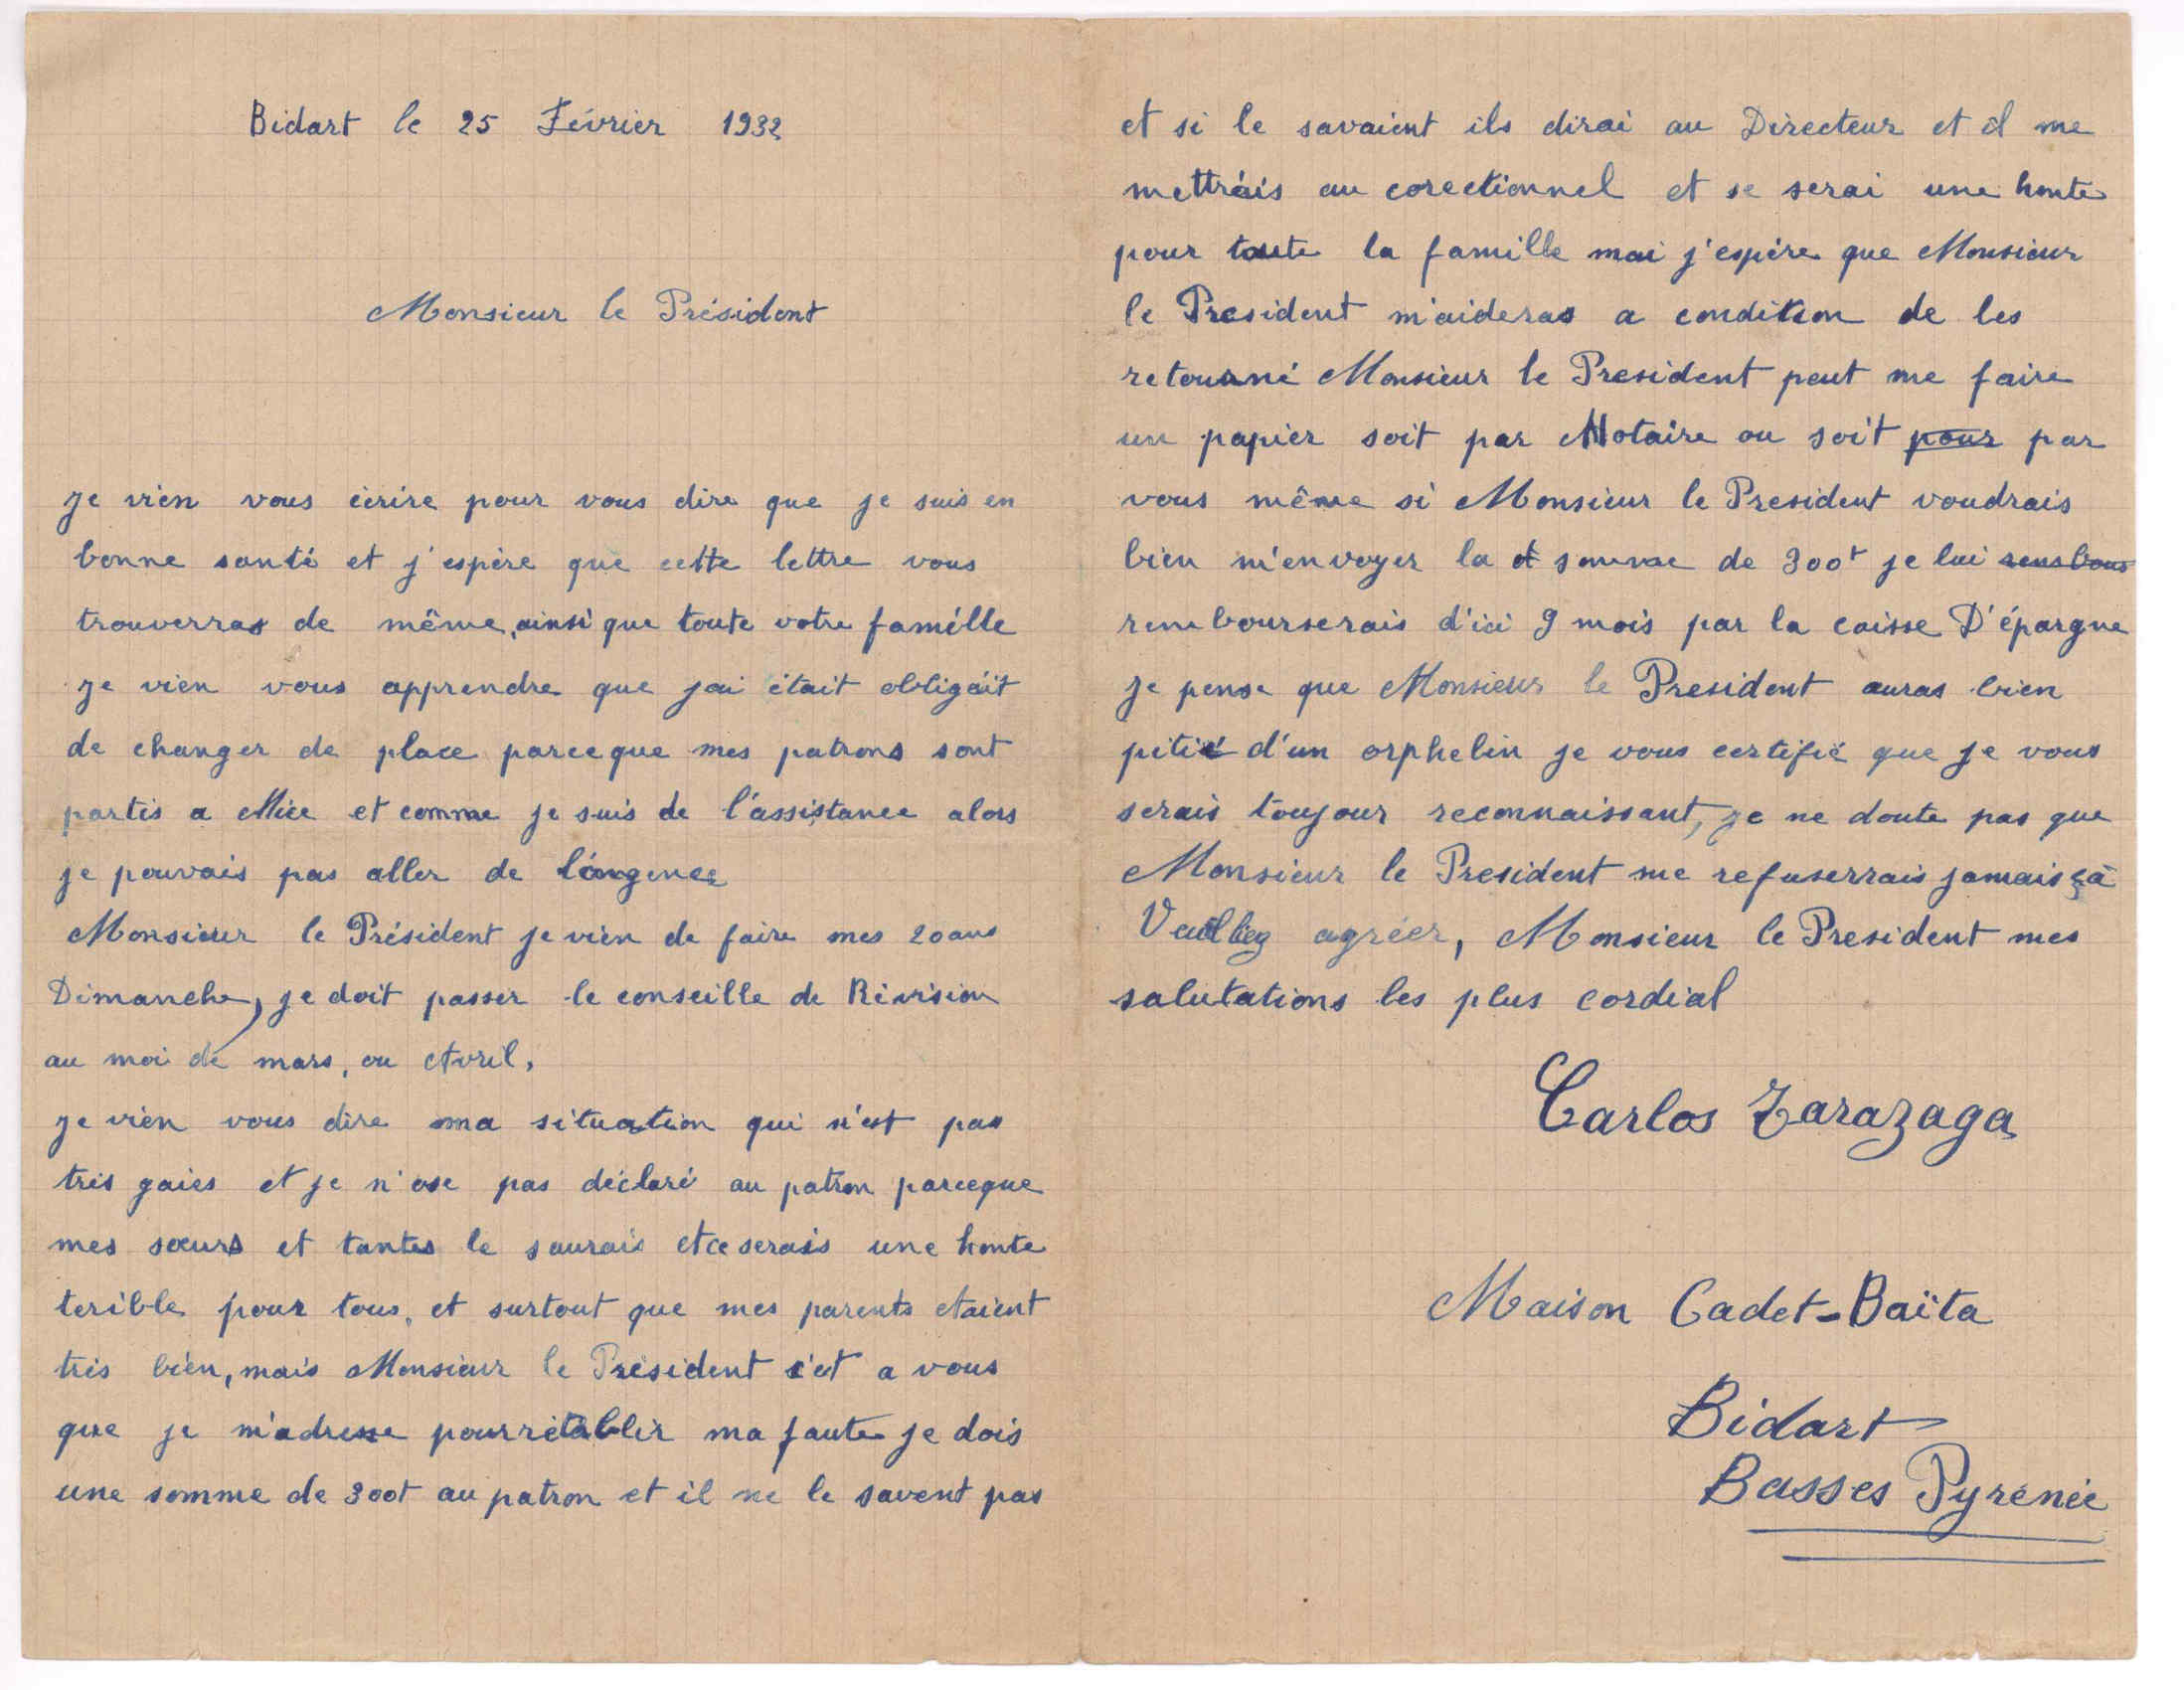 Bidart le 25 Février 1932
Monsieur le Président
je vien vous écrire pour vous dire que je suis en
bonne santé et j'espère que cette lettre vous
trouverras de même, ainsi que toute votre famille
je vien vous apprendre que jai était obligéit
de changer de place parceque mes patrons sont
partis a Nice et comme je suis de l'assistance alors
je pouvais pas aller de
Monsieur le Président je vien de faire mes 20 ans
Dimanche, je doit passer le conseille de Révision
au moi de mars, ou Avril,
je vien vous dire ma situation qui n'est pas
très gaies et je n'ose pas déclaré au patron parceque
mes sœurs et tantes le saurais et ce serais une honte
terible pour tous, et surtout que mes parents etaient
très bien, mais Monsieur le Président c'et a vous
que je m'adresse pour rétablir ma faute je dois
une somme de 300f au patron et il ne le savent pas
et si le savaient ils dirai au Directeur et il me
mettrais au corectionnel et se serai une honte
pour toute la famille mai j'espère que Monsieur
le President m'aideras a condition de les
retourné Monsieur le President peut me faire
un papier soit par Notaire ou soit pour par
vous même si Monsieur le President voudrais
bien m'envoyer la somme de 300f je lui
rembourserais d'ici 9 mois par la caisse D'épargne
je pense que Monsieur le President auras bien
pitié d'un orphelin je vous certifié que je vous
serais toujour reconnaissant, je ne doute pas que
Monsieur le President me refuserrais jamais çà
Veuillez agréer, Monsieur le President mes
salutations les plus cordial
Carlos Zarazaga
Maison Cadet-Baïta
Bidart
Basses Pyrénée